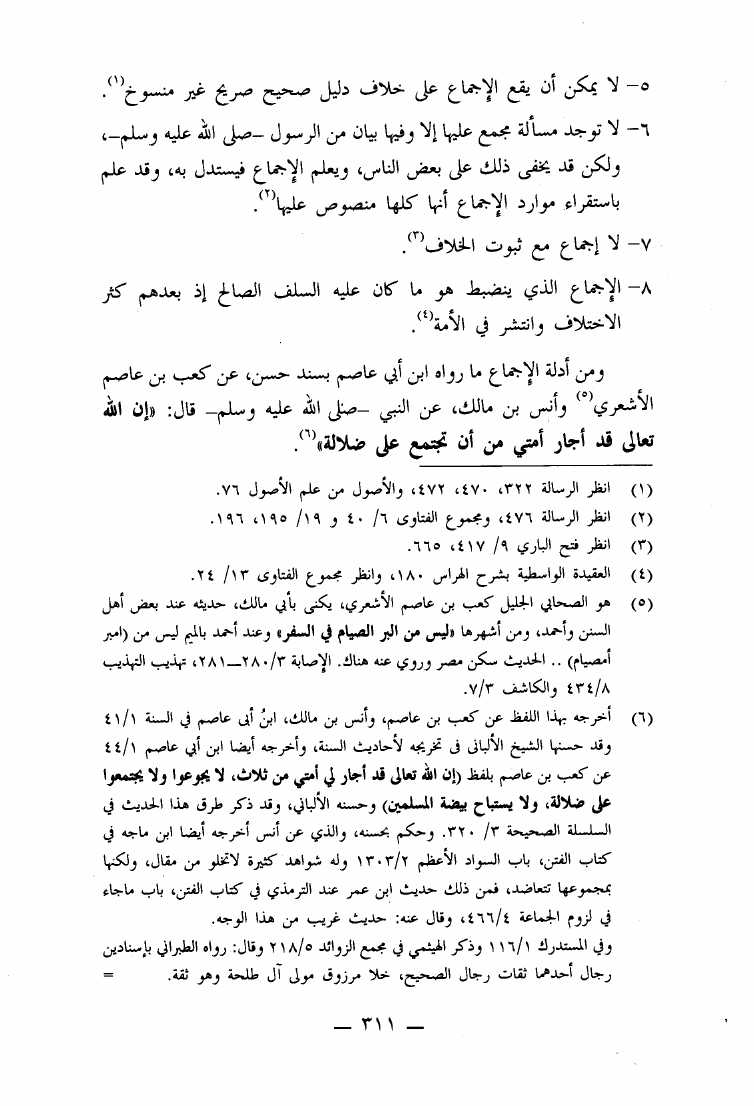 ٥- لا يمكن أن يقع الإجماع على خلاف دليل صحيح صريح غير منسوخ(١).
٦- لا توجد مسألة مجمع عليها إلا وفيها بيان من الرسول -صلى الله عليه وسلم-،
ولكن قد يخفى ذلك على بعض الناس، ويعلم الإجماع فيستدل به، وقد علم
باستقراء موارد الإجماع أنها كلها منصوص عليها(٢).
٧- لا إجماع مع ثبوت الخلاف(٣).
٨- الإجماع الذي ينضبط هو ما كان عليه السلف الصالح إذ بعدهم كثر
الاختلاف وانتشر في الأمة(٤).
ومن أدلة الإجماع ما رواه ابن أبي عاصم بسند حسن، عن كعب بن عاصم
الأشعري(٥) وأنس بن مالك، عن النبي -صلى الله عليه وسلم- قال: «إن الله
تعالى قد أجار أمتي من أن تجتمع على ضلالة»(٦).
(١) انظر الرسالة ٣٢٢، ٤٧٠، ٤٧٢، والأصول من علم الأصول ٧٦.
(٢) انظر الرسالة ٤٧٦، ومجموع الفتاوى ٦/ ٤٠ و ١٩/ ١٩٥، ١٩٦.
(٣) انظر فتح الباري ٩/ ٤١٧، ٦٦٥.
(٤) العقيدة الواسطية بشرح الهراس ١٨٠، وانظر مجموع الفتاوى ١٣/ ٢٤.
(٥) هو الصحابي الجليل كعب بن عاصم الأشعري، يكنى بأبي مالك، حديثه عند بعض أهل
السنن وأحمد، ومن أشهرها «ليس من البر الصيام في السفر» وعند أحمد بالميم ليس من (امبر
أمصيام) .. الحديث سكن مصر وروي عنه هناك. الإصابة ٢٨٠/٣—٢٨١، تهذيب التهذيب
٤٣٤/٨ والكاشف ٧/٣.
(٦) أخرجه بهذا اللفظ عن كعب بن عاصم، وأنس بن مالك، ابنُ أبى عاصم في السنة ٤١/١
وقد حسنها الشيخ الألبانى فى تخريجه لأحاديث السنة، وأخرجه أيضا ابن أبي عاصم ٤٤/١
عن كعب بن عاصم بلفظ (إن الله تعالى قد أجار لي أمتي من ثلاث، لا يجوعوا ولا يجتمعوا
على ضلالة، ولا يستباح بيضة المسلمين) وحسنه الألباني، وقد ذكر طرق هذا الحديث في
السلسلة الصحيحة ٣/ ٣٢٠. وحكم بحسنه، والذي عن أنس أخرجه أيضا ابن ماجه في
كتاب الفتن، باب السواد الأعظم ١٣٠٣/٢ وله شواهد كثيرة لاتخلو من مقال، ولكنها
بمجموعها تتعاضد، فمن ذلك حديث ابن عمر عند الترمذي في كتاب الفتن، باب ماجاء
في لزوم الجماعة ٤٦٦/٤، وقال عنه: حديث غريب من هذا الوجه.
وفي المستدرك ١١٦/١ وذكر الهيثمي في مجمع الزوائد ٢١٨/٥ وقال: رواه الطبراني بإسنادين
رجال أحدهما ثقات رجال الصحيح، خلا مرزوق مولى آل طلحة وهو ثقة. =
— ٣١١ —